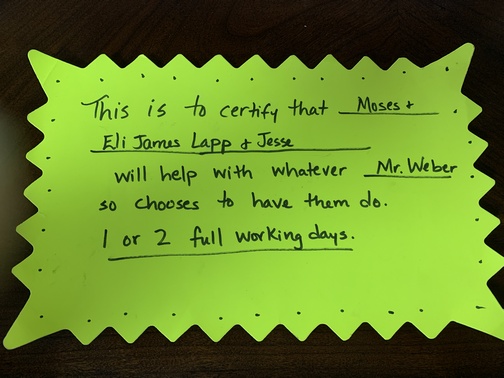 This is to certify that Moses +
Eli James Lapp + Jesse
will help with whatever Mr. Weber
so chooses to have them do.
1 or 2 full working days.